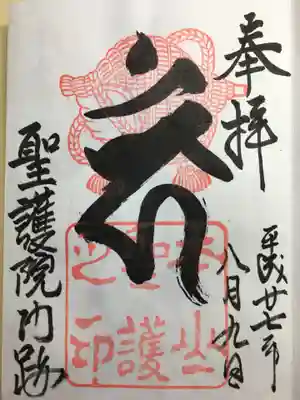 奉拝
平成廿七年
八月九日
聖護院門跡